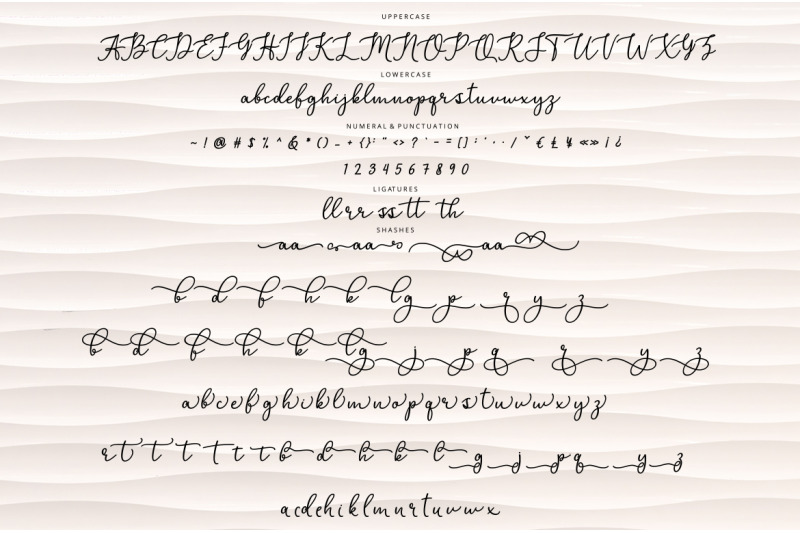 UPPERCASE
ABCDEFGHIJKLMNOPQRSTUVWXYZ
LOWERCASE
abcdefghijklmnopqrstuvwxyz
NUMERAL & PUNCTUATION
~ ! @ # $ % ^ & * () _ + {} : " <> ? ` - = [] ; ' , . / ˇ € £ ¥ «» ¡ ¿
1 2 3 4 5 6 7 8 9 0
LIGATURES
ll rr ss tt th
SHASHES
aa aa aa
b d f h k l g p q y z
b d f h k l g j p q q y z
abcdefghiklmnopqrstuvwxyz
r t t t t t t b d h k l g j p q y z
acdehiklmnrtuvwx